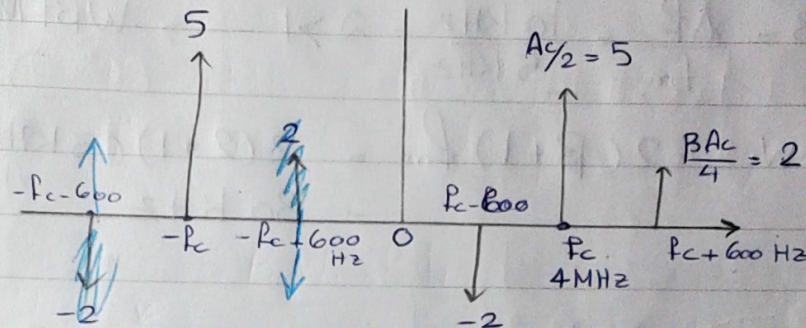 5
Ac/2 = 5
2
βAc/4 = 2
-fc-600
fc-600
-fc
-fc+600 Hz
0
fc
4MHz
fc+600 Hz
-2
-2